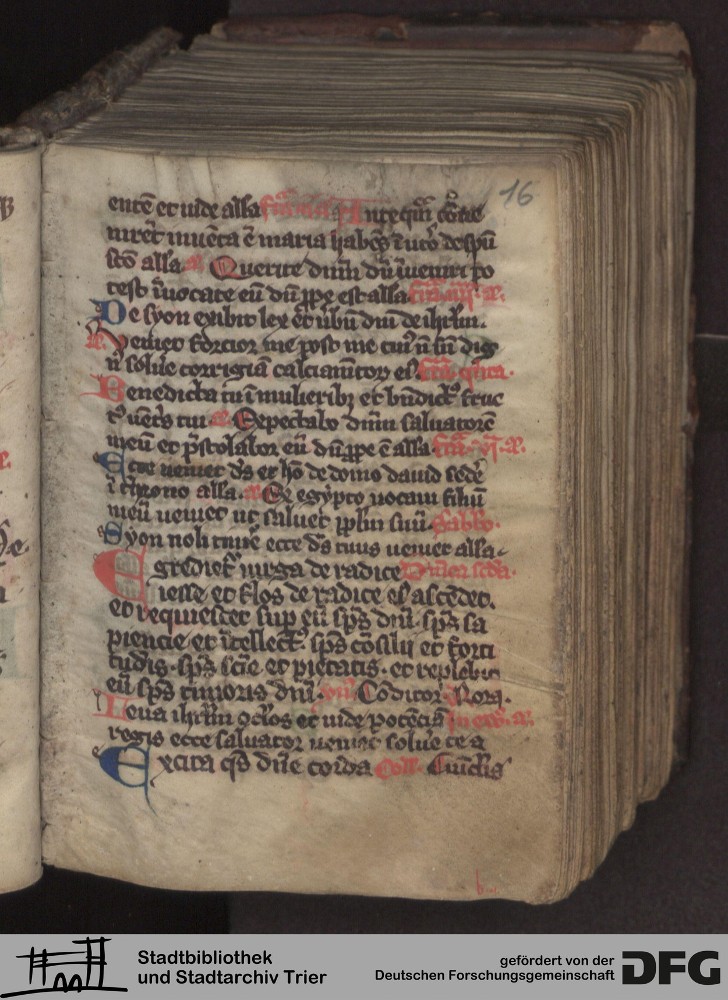 16
entē et uide all'a feria iiia Anteqͣm cōue
nirēt inuēta ē maria habēs ī utō de spū
scō all'a Querite dnm̄ dū īueniri po
test īuocate eū dū ꝓpe est all'a
De syon exibit lex et ūbū dnī de ihrlm̄.
Veniet fortior me post me cuiꝰ nō sū dig
nꝰ soluē corrigiā calciam̄torū eiꝰ
Benedicta tu ī mulieribꝫ et bn̄dictꝰ fruc
tꝰ uēt̄s tui Expectabo dnm̄ saluatorē
meū et p̄stolabor eū dū ꝓpe ē all'a
Ecce ueniet d̄s et hō de domo dauid sedē
ī throno all'a. Ex egypto uocaui filiū
meū ueniet ut saluet ppl̄m suū Sabbo.
Syon noli timē ecce d̄s tuus ueniet all'a
Egrediet᷑ uirga de radice
iesse et flos de radice eiꝰ ascēdet.
et requiescet sup eū sp̄s dnī. sp̄s sa
piencie et ītellectꝰ sp̄s cōsilii et forti
tudis. sp̄s scīe et pietatis. et replebit
eū sp̄s timoris dnī. Cōditor Rorā.
Leua ihrlm̄ oclos et uide potēciā
regis ecce saluator ueniet soluē te a
Excita qs̄ dn̄e corda Coll. Cūctis
Stadtbibliothek
und Stadtarchiv Trier
gefördert von der
Deutschen Forschungsgemeinschaft
DFG